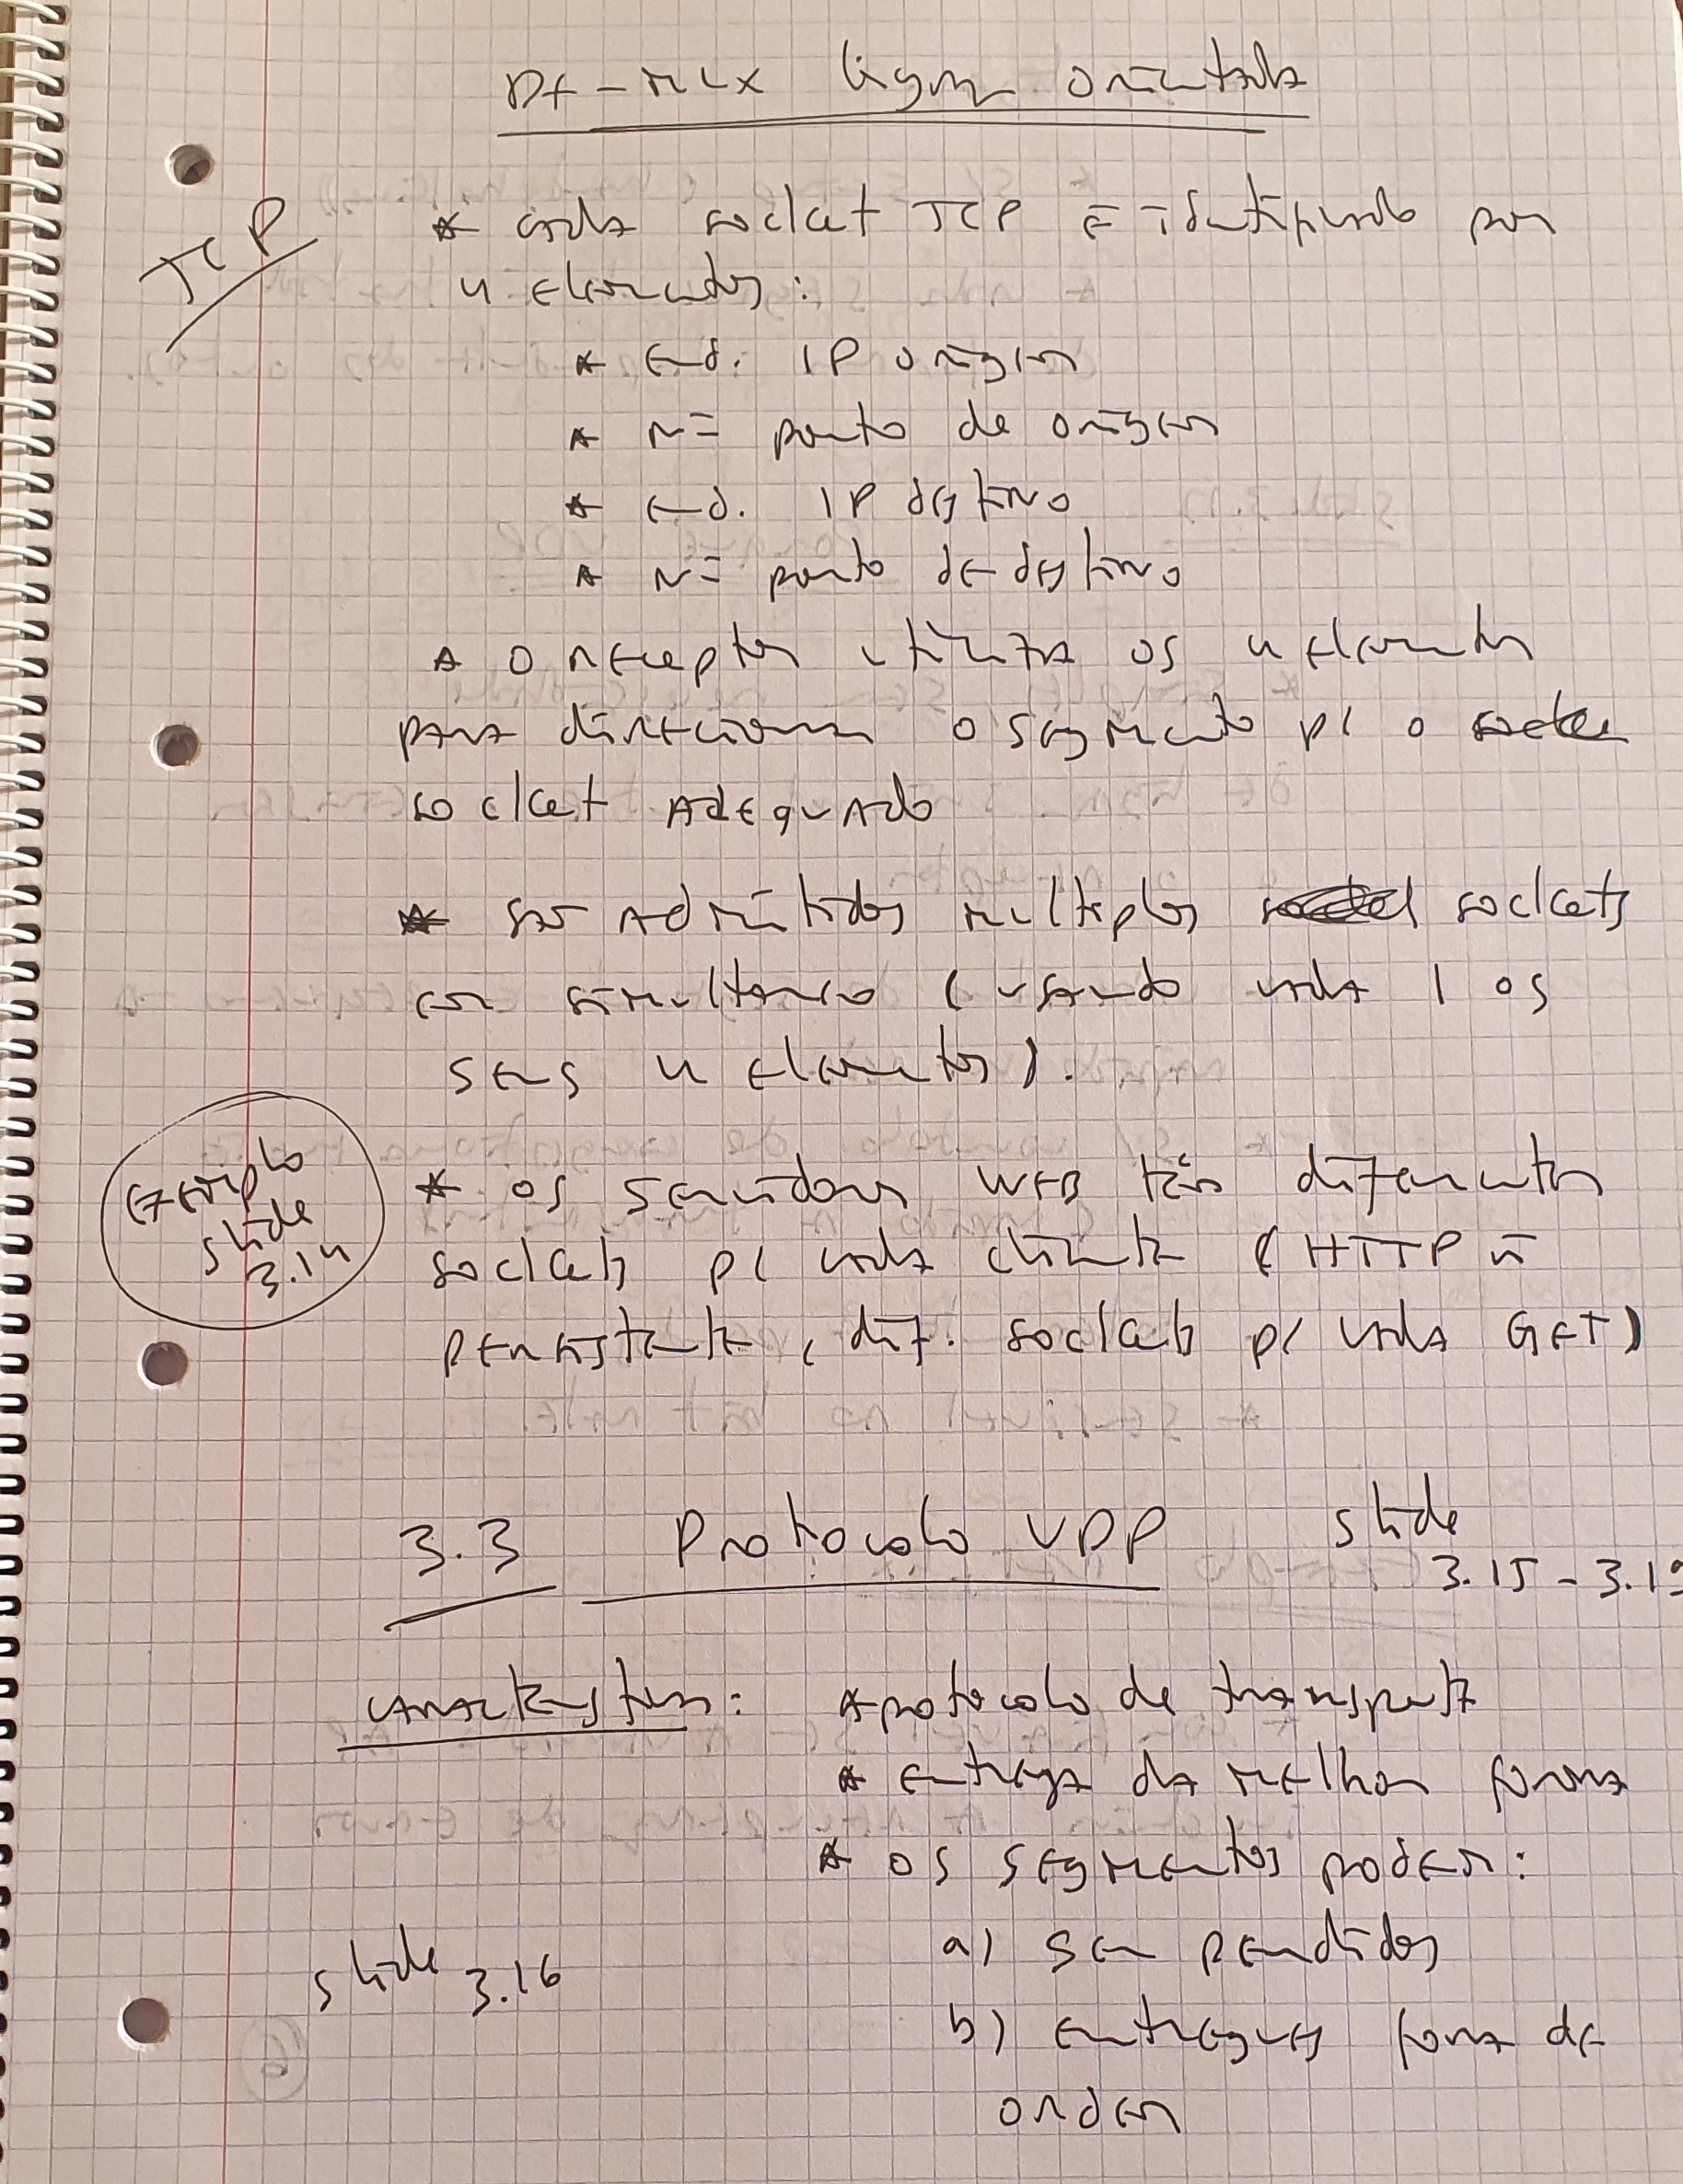 De-mux ligação orientada
TCP
* cada socket TCP é identificado por
4 elementos:
* end. IP origem
* nº porto de origem
* end. IP destino
* nº porto de destino
* o receptor utiliza os 4 elementos
para direcionar o segmento p/ o
socket adequado
* são admitidos multiplos sockets
em simultaneo (usando cada 1 os
seus 4 elementos).
Exemplo
slide
3.14
* os servidores WEB têm diferentes
sockets p/ cada cliente (HTTP ñ
persistente, dif. sockets p/ cada GET)
3.3 Protocolo UDP slide
3.15 - 3.19
características: * protocolo de transporte
* entrega da melhor forma
* os segmentos podem:
slide 3.16
a) ser perdidos
b) entregues fora de
ordem